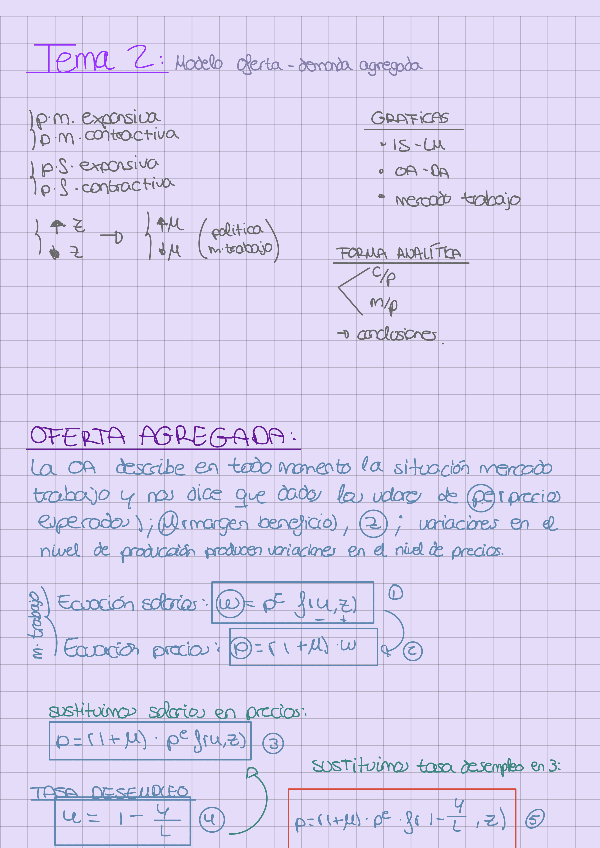 Tema 2: Modelo oferta-demanda agregada
p.m. expansiva
p.m. contractiva
p.f. expansiva
p.f. contractiva
↑ z → ↑μ (política
↓ z ↓μ m.trabajo)
GRAFICAS
• IS-LM
• OA-DA
• mercado trabajo
FORMA ANALÍTICA
c/p
m/p
→ conclusiones.
OFERTA AGREGADA:
La OA describe en todo momento la situación mercado
trabajo y nos dice que dados los valores de pe (precios
esperados); μ (margen beneficio), z; variaciones en el
nivel de producción producen variaciones en el nivel de precios.
m.trabajo
Ecuación salarios: w = pᵉ f(u,z) ①
− +
Ecuación precios: p = (1+μ) · w ②
sustituimos salarios en precios:
p = (1+μ) · pᵉ f(u,z) ③
sustituimos tasa desempleo en 3:
TASA DESEMPLEO
u = 1 - Y/L ④
p = (1+μ) · pᵉ · f(1 - Y/L , z) ⑤